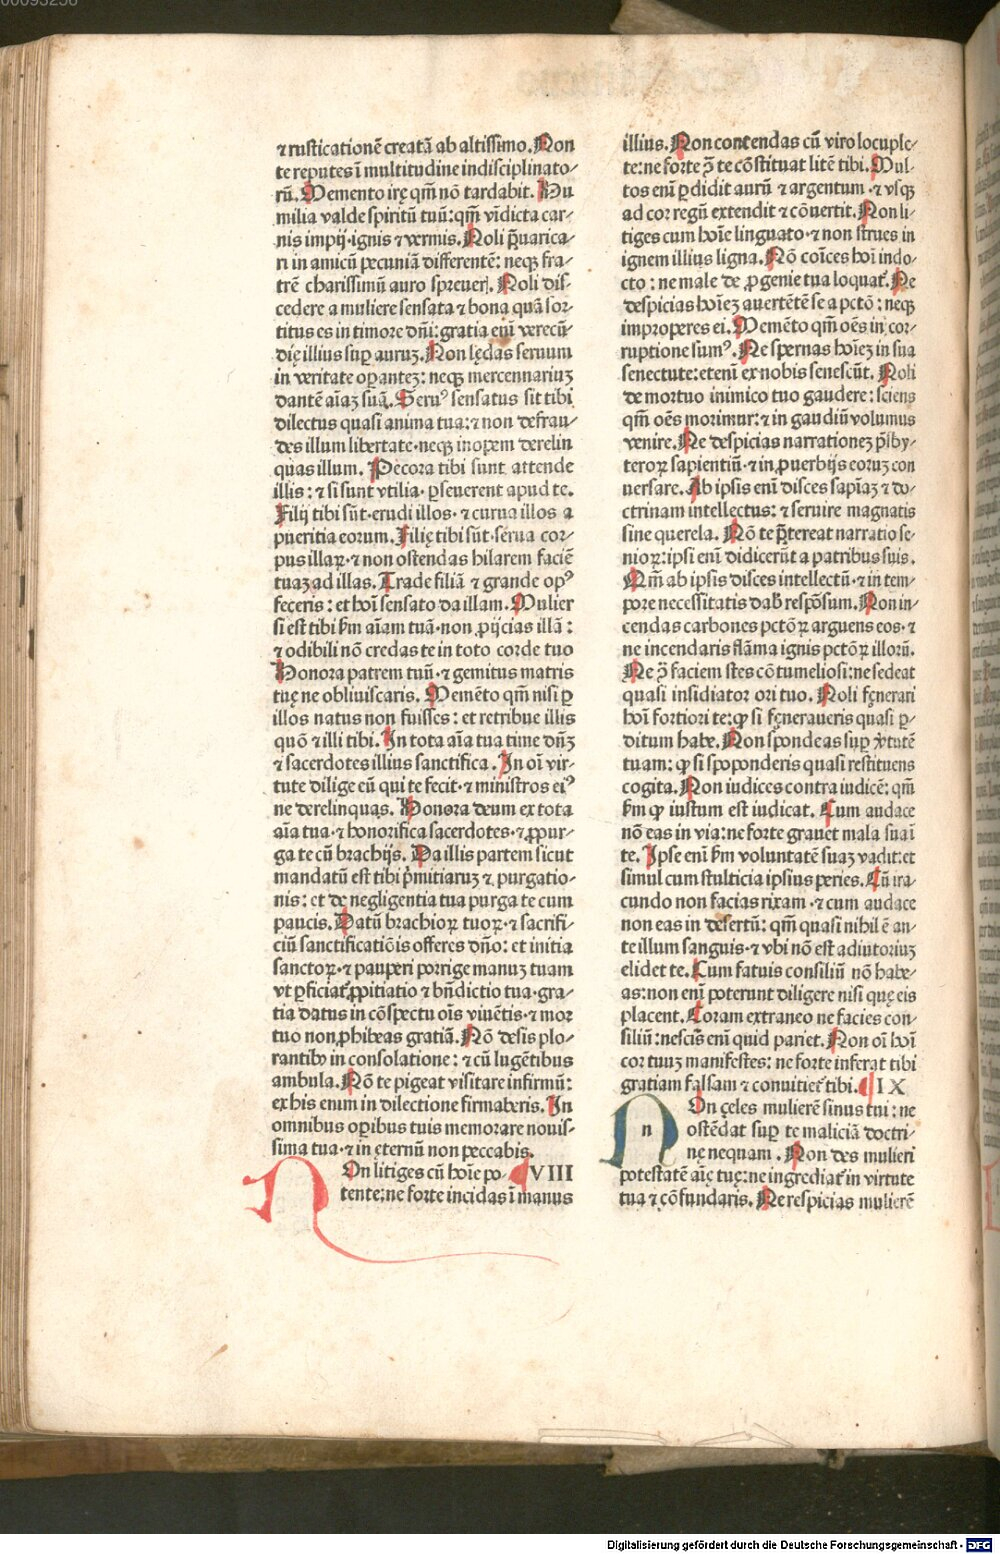 ⁊ rusticationē creatā ab altissimo. Non
te reputes ī multitudine indisciplinato⸗
rū. Memento irę qm̄ nō tardabit. Hu
milia valde spiritū tuū: qm̄ vīdicta car⸗
nis impij·ignis ⁊ vermis. Noli p̄uarica⸗
ri in amicū pecuniā differentē: neqꝫ fra⸗
trē charissimū auro spreuer̄. Noli dis⸗
cedere a muliere sensata ⁊ bona quā sor⸗
titus es in timore dn̄i: gratia enī verecū⸗
dię illius suꝑ auruꝫ. Non lędas seruum
in veritate oꝑanteꝫ: neqꝫ mercennariuꝫ
dantē aīaꝫ suā. Seruꝰ sensatus sit tibi
dilectus quasi anima tua: ⁊ non defrau⸗
des illum libertate·neqꝫ inopem derelin
quas illum. Pecora tibi sunt attende
illis: ⁊ si sunt vtilia·ꝑseuerent apud te.
Filij tibi sūt·erudi illos·⁊ curua illos a
pueritia eorum. Filię tibi sūt·serua cor⸗
pus illaꝝ·⁊ non ostendas hilarem faciē
tuaꝫ ad illas. Trade filiā ⁊ grande opꝰ
feceris: et hoī sensato da illam. Mulier
si est tibi k̄m aīam tuā·non ꝓijcias illā:
⁊ odibili nō credas te in toto corde tuo
Honora patrem tuū·⁊ gemitus matris
tuę ne obliuiscaris. Memēto qm̄ nisi ꝑ
illos natus non fuisses: et retribue illis
quō ⁊ illi tibi. In tota aīa tua time dn̄ꝫ
⁊ sacerdotes illius sanctifica. In oī vir⸗
tute dilige eū qui te fecit·⁊ ministros eiꝰ
ne derelinquas. Honora deum ex tota
aīa tua·⁊ honorifica sacerdotes·⁊ ꝓpur⸗
ga te cū brachijs. Da illis partem sicut
mandatū est tibi p̄mitiaruꝫ ⁊ purgatio⸗
nis: et de negligentia tua purga te cum
paucis. Datū brachioꝝ tuoꝝ·⁊ sacrifi⸗
ciū sanctificatiōis offeres dn̄o: et initia
sanctoꝝ·⁊ pauperi porrige manuꝫ tuam
vt ꝑficiat̄ ꝓpitiatio ⁊ bn̄dictio tua·gra⸗
tia datus in cōspectu oīs viuētis·⁊ mor
tuo non ꝓhibeas gratiā. Nō desis plo⸗
rantibꝫ in consolatione: ⁊ cū lugētibus
ambula. Nō te pigeat visitare infirmū:
ex his enim in dilectione firmaberis. In
omnibus oꝑibus tuis memorare nouis⸗
sima tua·⁊ in ęternū non peccabis.
Non litiges cū hoīe po⸗ VIII
tente: ne forte incidas ī manus
illius. Non contendas cū viro locuple⸗
te: ne forte ꝯ̄ te cōstituat litē tibi. Mul⸗
tos enī ꝑdidit aurū ⁊ argentum·⁊ vsqꝫ
ad cor regū extendit ⁊ cōuertit. Non li⸗
tiges cum hoīe linguato·⁊ non strues in
ignem illius ligna. Nō coīces hoī indo⸗
cto: ne male de ꝓgenie tua loquat̄. Ne
despicias hoīeꝫ auertētē se a pctō: neqꝫ
improperes ei. Memēto qm̄ oēs in cor⸗
ruptione sumꝰ. Ne spernas hoīeꝫ in sua
senectute: etenī ex nobis senescūt. Noli
de mortuo inimico tuo gaudere: sciens
qm̄ oēs morimur: ⁊ in gaudiū volumus
venire. Ne despicias narrationeꝫ p̄sby⸗
teroꝝ sapientiū·⁊ in ꝓuerbijs eoruꝫ con
uersare. Ab ipsis enī disces sapīaꝫ ⁊ do⸗
ctrinam intellectus: ⁊ seruire magnatis
sine querela. Nō te p̄tereat narratio se⸗
nioꝝ: ipsi enī didicerūt a patribus suis.
Qm̄ ab ipsis disces intellectū·⁊ in tem⸗
pore necessitatis dab̄ respōsum. Non in⸗
cendas carbones pctōꝝ arguens eos·⁊
ne incendaris flāma ignis pctōꝝ illorū.
Ne ꝯ̄ faciem stes cōtumeliosi: ne sedeat
quasi insidiator ori tuo. Noli fęnerari
hoī fortiori te: ꝙ si fęneraueris quasi ꝑ⸗
ditum habe. Non spondeas suꝑ v̄tutē
tuam: ꝙ si spoponderis quasi restituens
cogita. Non iudices contra iudicē: qm̄
k̄m ꝙ iustum est iudicat. Cum audace
nō eas in via: ne forte grauet mala sua ī
te. Ipse enī k̄m voluntatē suaꝫ vadit: et
simul cum stulticia ipsius peries. Cū ira⸗
cundo non facias rixam·⁊ cum audace
non eas in desertū: qm̄ quasi nihil ē an⸗
te illum sanguis·⁊ vbi nō est adiutoriuꝫ
elidet te. Cum fatuis consiliū nō habe⸗
as: non enī poterunt diligere nisi quę eis
placent. Coram extraneo ne facies con⸗
siliū: nescis enī quid pariet. Non oī hoī
cor tuuꝫ manifestes: ne forte inferat tibi
gratiam falsam ⁊ conuitiet̄ tibi. IX
n
Non çeles mulierē sinus tui: ne
ostēdat suꝑ te maliciā doctri⸗
nę nequam. Non des mulieri
potestatē aię tuę: ne ingrediat̄ in virtute
tua ⁊ cōfundaris. Ne respicias mulierē
Digitalisierung gefördert durch die Deutsche Forschungsgemeinschaft - DFG